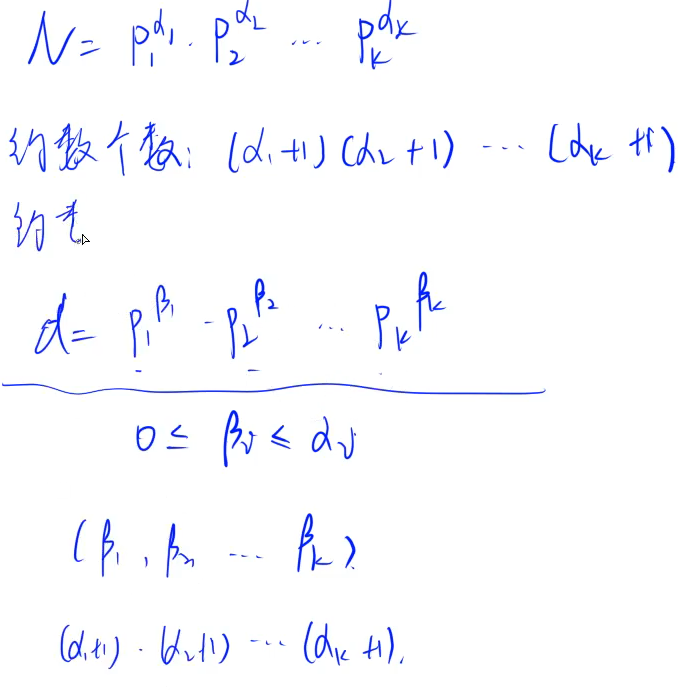 N = p₁^α₁ · p₂^α₂ ... pₖ^αₖ
约数个数: (α₁+1)(α₂+1) ... (αₖ+1)
约
d = p₁^β₁ · p₂^β₂ ... pₖ^βₖ
0 ≤ βᵢ ≤ αᵢ
(β₁, β₂ ... βₖ)
(α₁+1) · (α₂+1) ... (αₖ+1).